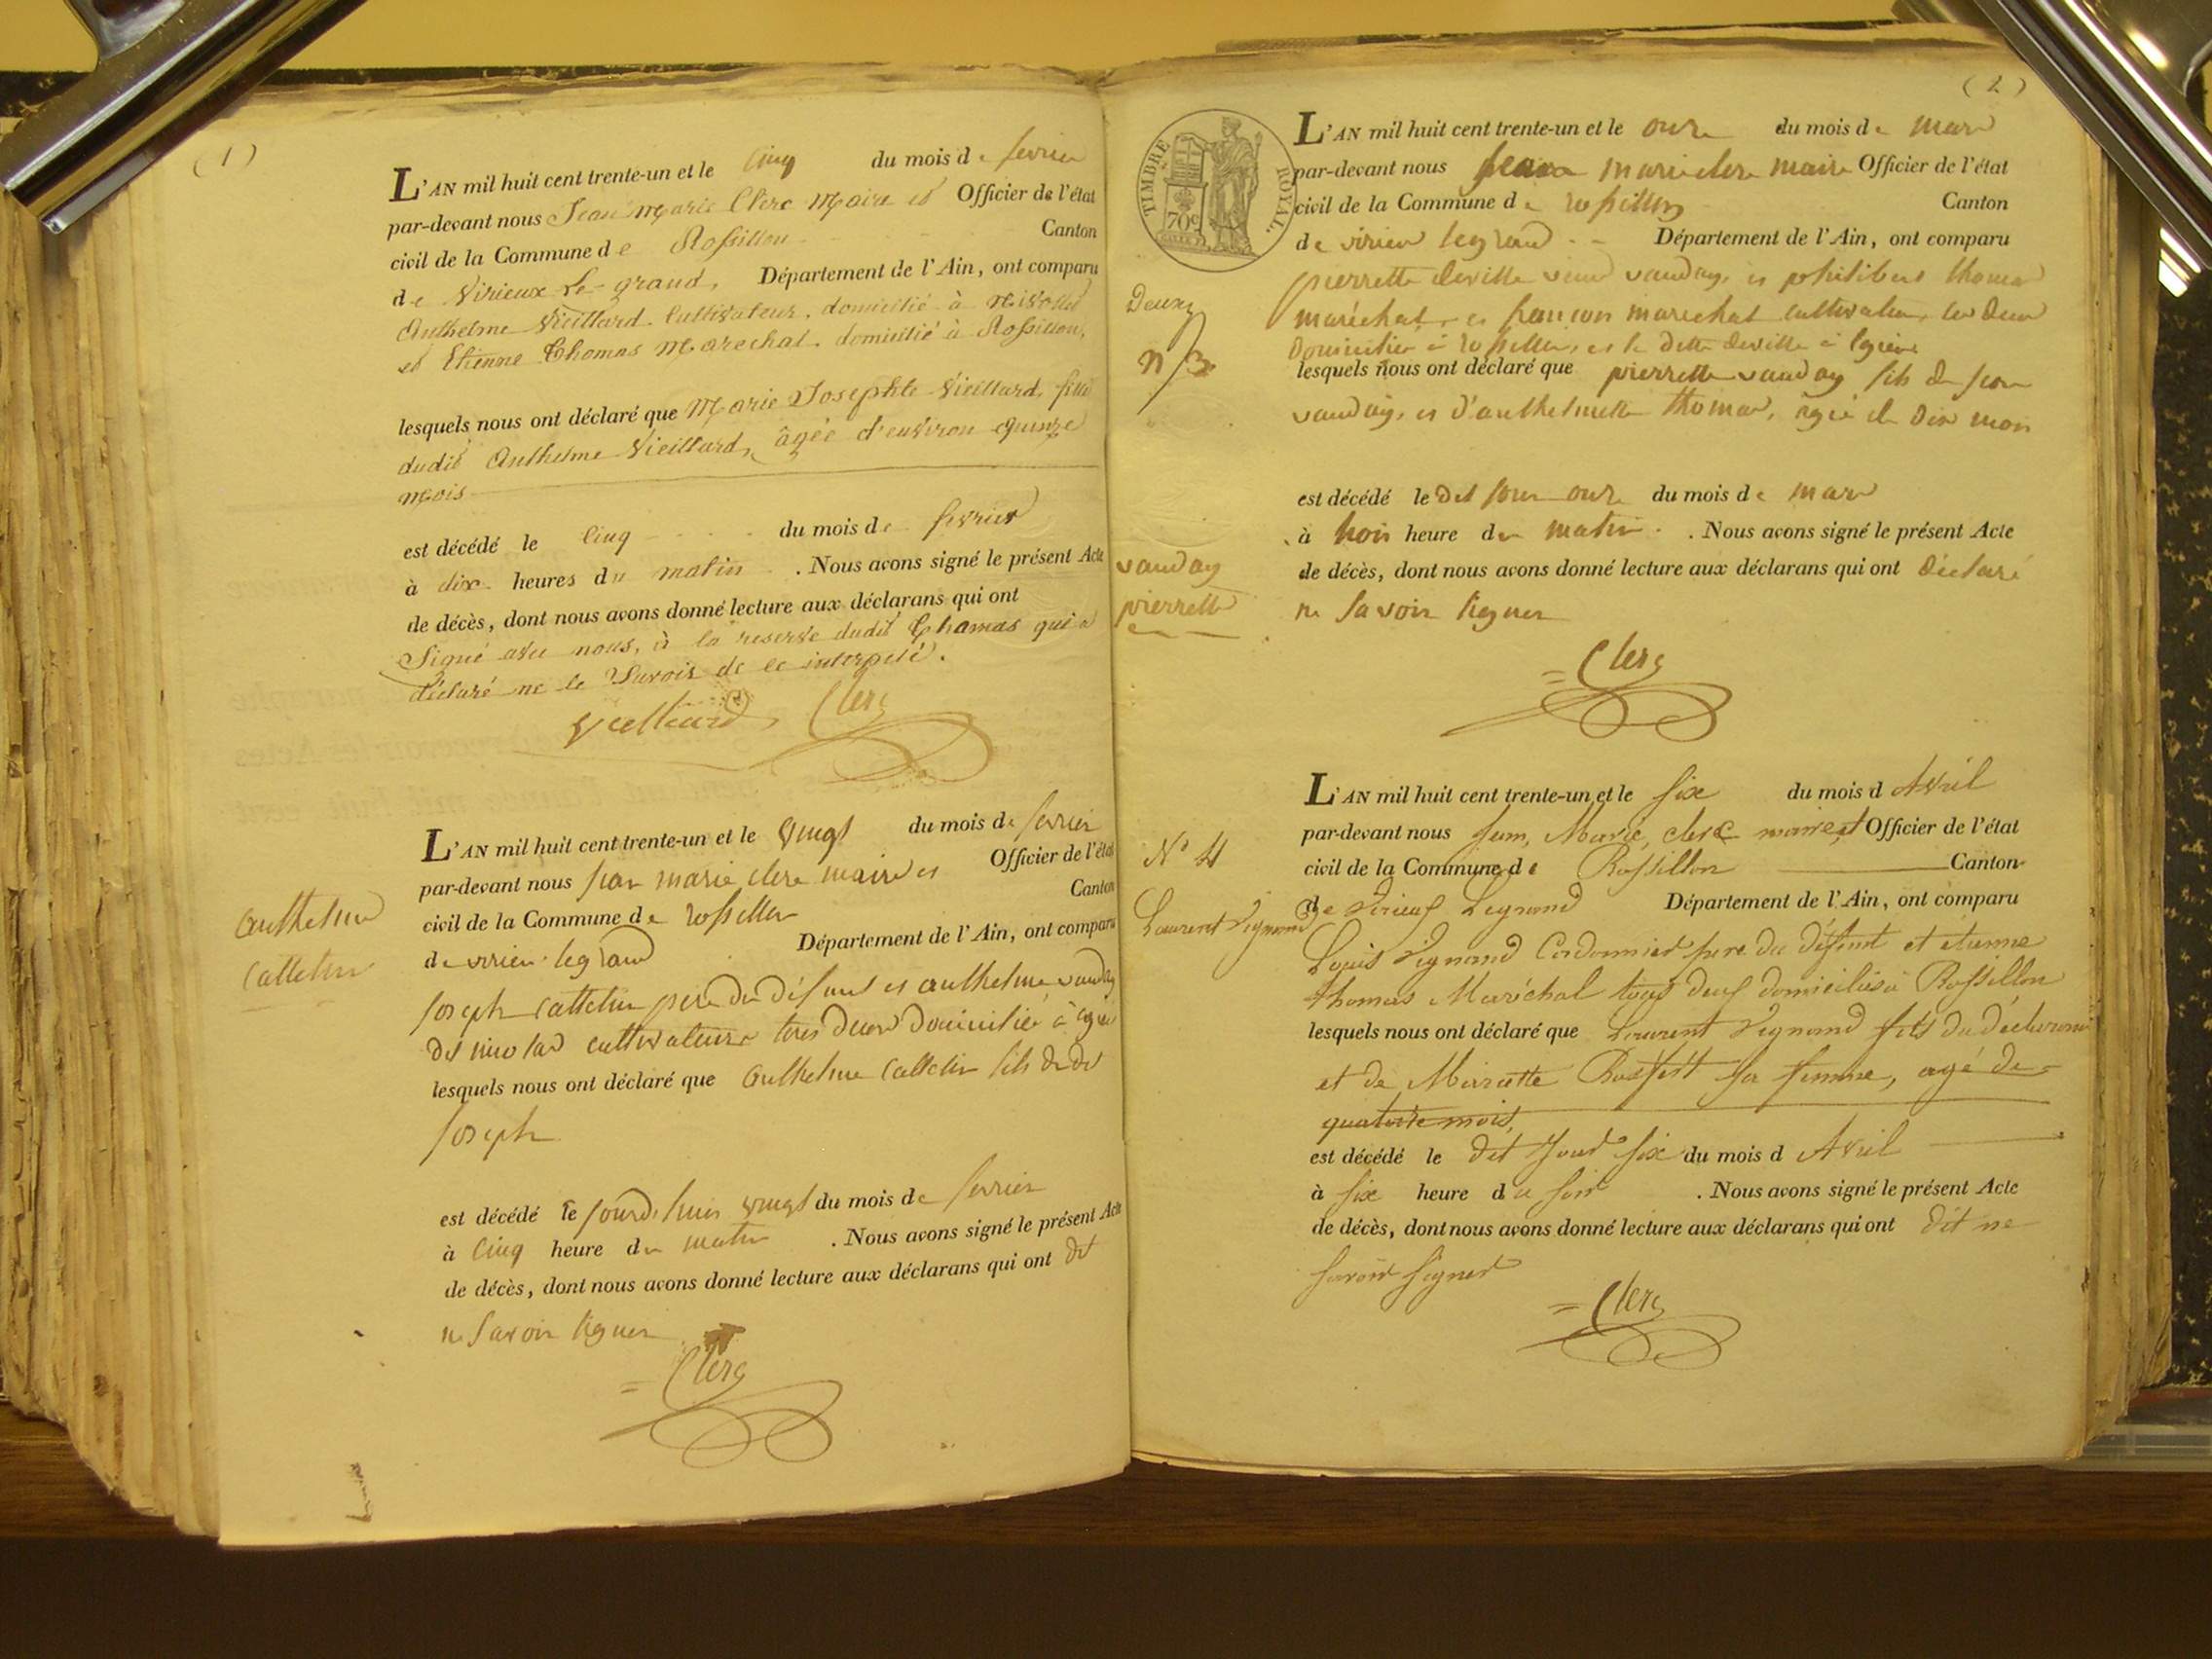 ( 1 )
L'AN mil huit cent trente-un et le cinq du mois de fevrier
par-devant nous Jean Marie Clerc Maire et Officier de l'état
civil de la Commune de Rossillon Canton
de Virieux Le grand, Département de l'Ain, ont comparu
Anthelme Vieillard Cultivateur, domicilié à
et Etienne Thomas Marechal domicilié à Rossillon,
lesquels nous ont déclaré que Marie Josephte Vieillard, fille
dudit Anthelme Vieillard, âgée d'environ quinze
mois
est décédé le Cinq du mois de fevrier
à dix heures du matin . Nous avons signé le présent Acte
de décès, dont nous avons donné lecture aux déclarans qui ont
Signé avec nous, à la reserve dudit Thomas qui a
déclaré ne le Savoir de ce interpelé.
Vieilliard Clerc
Anthelme
Cattelin
L'AN mil huit cent trente-un et le vingt du mois de fevrier
par-devant nous jean marie clerc maire et Officier de l'état
civil de la Commune de rossillon Canton
de virieu legrand Département de l'Ain, ont comparu
joseph cattelin pere du défunt et anthelme vauday
dit nicolas cultivateurs tous deux domicilié à
lesquels nous ont déclaré que Anthelme Cattelin fils dudit
joseph
est décédé le jourd'huis vingt du mois de fevrier
à Cinq heure du matin . Nous avons signé le présent Acte
de décès, dont nous avons donné lecture aux déclarans qui ont dit
ne Savoir signer
= Clerc
( 2 )
TIMBRE ROYAL.
70c
L'AN mil huit cent trente-un et le onze du mois de mars
par-devant nous jean marie clerc maire Officier de l'état
civil de la Commune de rossillon Canton
de virieu legrand Département de l'Ain, ont comparu
pierrette deville vauday, et philibert thomas
maréchal, et francois marechal cultivateur, les deux
Domicilié à rossillon, et la ditte deville à
Deux
n 3
lesquels nous ont déclaré que pierrette vauday fils de jean
vauday, et d'anthelmette thomas, agée de dix mois
est décédé le dit jour onze du mois de mars
à trois heure du matin . Nous avons signé le présent Acte
vauday
pierrette
de décès, dont nous avons donné lecture aux déclarans qui ont déclaré
ne Savoir signer
= Clerc
N° 4
Laurent Vignand
L'AN mil huit cent trente-un et le six du mois d Avril
par-devant nous Jean, Marie, clerc maire, et Officier de l'état
civil de la Commune de Rossillon Canton
de Virieux Legrand Département de l'Ain, ont comparu
Louis Vignand Cordonnier pere du défunt et etienne
thomas Maréchal tous deux domiciliés à Rossillon
lesquels nous ont déclaré que Laurent Vignand fils du déclarant
et de Mariette sa femme, agé de
quatorze mois,
est décédé le dit Jour six du mois d Avril
à six heure du soir . Nous avons signé le présent Acte
de décès, dont nous avons donné lecture aux déclarans qui ont dit ne
savoir signer
= Clerc